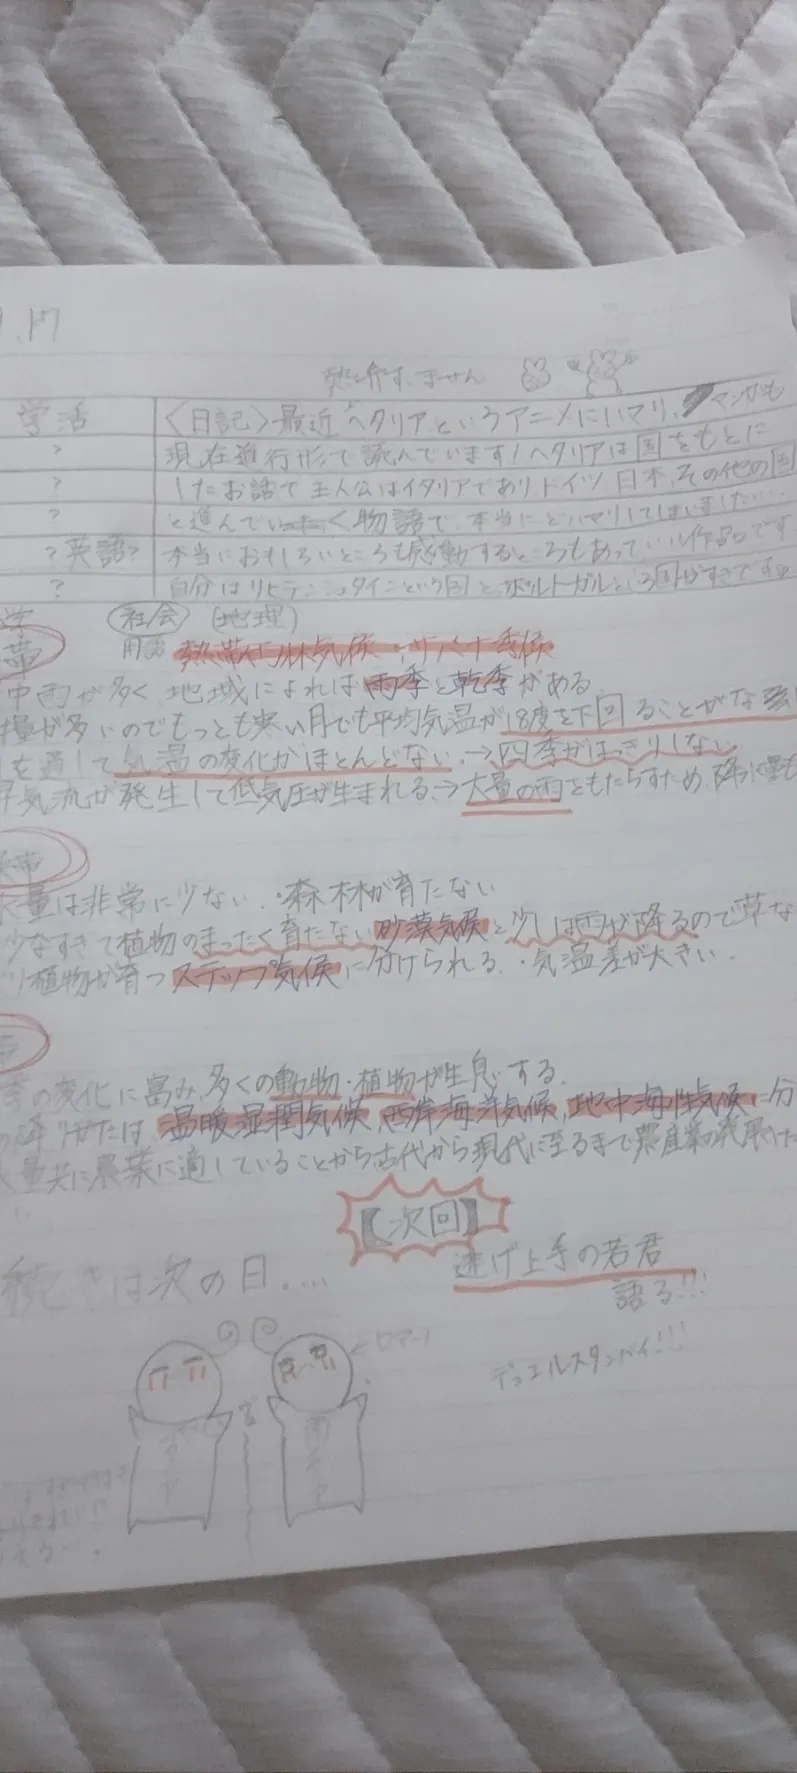 .17
ません
学活 〈日記〉最近ヘタリアというアニメにハマり、マンガも
? 現在進行形で読んでいます!ヘタリアは国をもとに
? したお話で主人公はイタリアでありドイツ 日本、その他の国
? と進んでいく物語で、本当にドハマりしてしまいました…
?英語? 本当におもしろいところも感動するところもあっていい作品です
? 自分はリヒテンシュタインという国と、ポルトガルという国がすきです
学 社会 (地理)
帯 用語 熱帯雨林気候・サバナ気候
中雨が多く 地域によれば雨季と乾季がある
量が多いのでもっとも寒い月でも平均気温が18度を下回ることがな
を通して気温の変化がほとんどない.→四季がはっきりしない
昇気流が発生して低気圧が生まれる.→大量の雨をもたらすため、降水量も
水量は非常に少ない.・森林が育たない
少なすぎて植物のまったく育たない砂漠気候と少しは雨が降るので草な
植物が育つステップ気候に分けられる.・気温差が大きい.
季の変化に富み、多くの動物・植物が生息する.
降りかたは、温暖湿潤気候、西岸海洋気候、地中海性気候に分
量共に農業に適していることから古代から現代に至るまで農産業の発展
【次回】
逃げ上手の若君
語る!!!
続きは次の日....
デュエルスタンバイ!!!